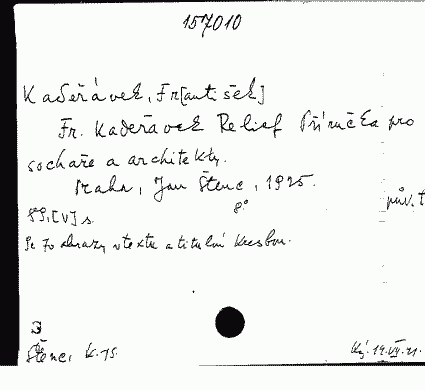 157010
Kadeřávek, Fr[antišek]
Fr. Kadeřávek Relief Příručka pro
sochaře a architekty.
Praha, Jan Štenc, 1925.
8°
původ. t
89, [V] s.
Se 70 obrazy v textu a titulní kresbou.
Štenc, K. 15.